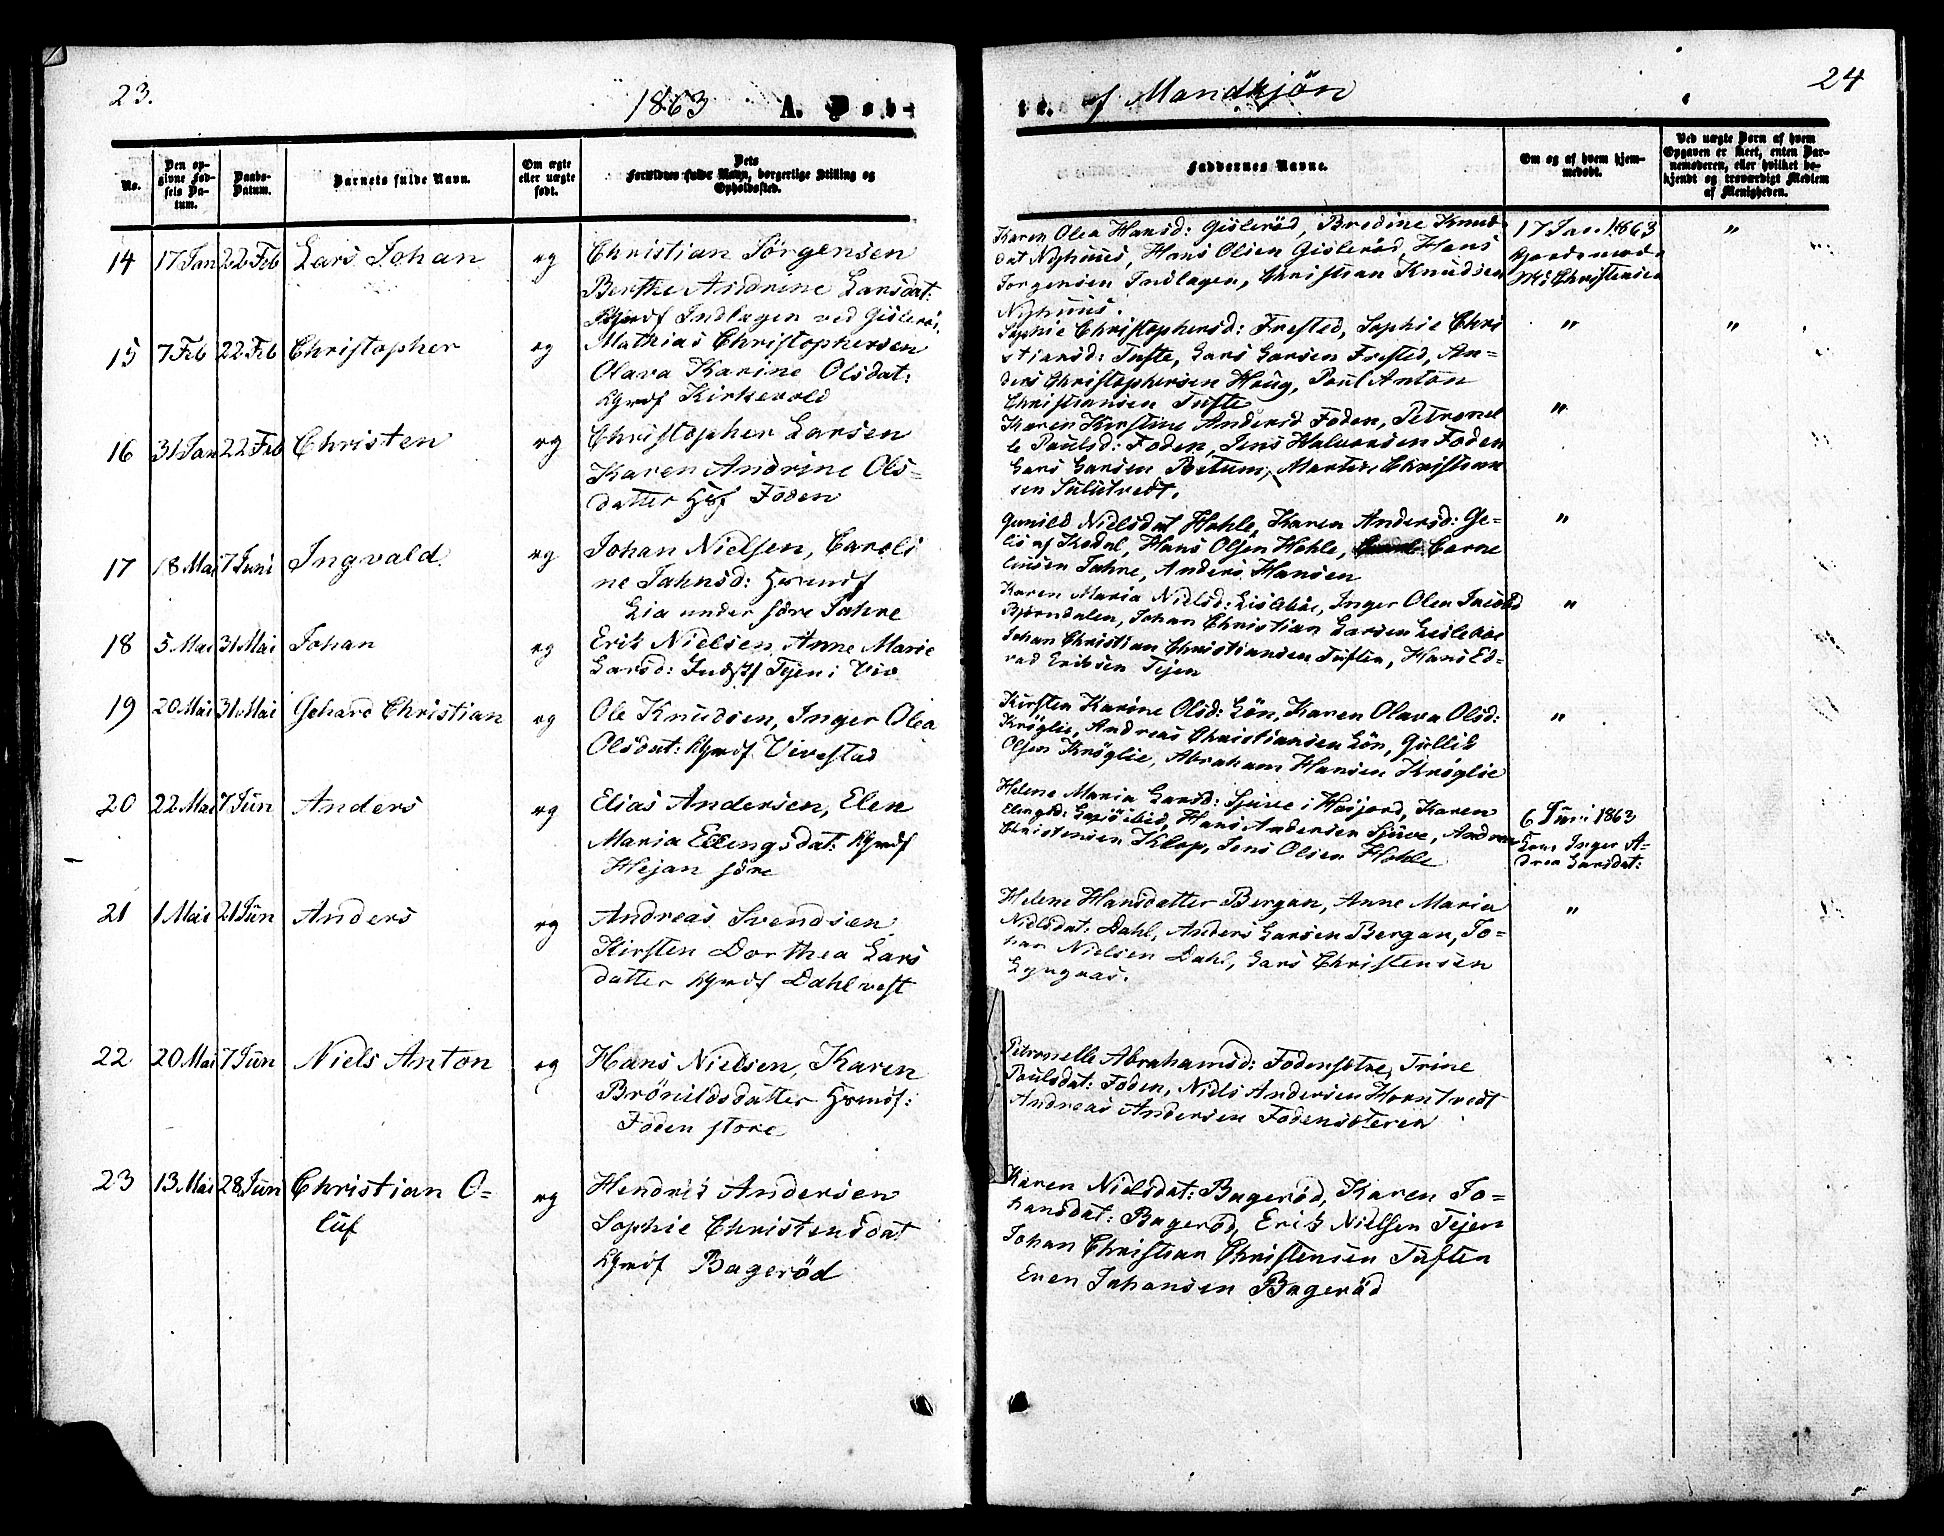 23.
1863 A. Døb-
te. af Mandkjön
24
No.
Den op-
givne Fød-
sels Da-
tum.
Daabs-
Datum.
Barnets fulde Navn.
Om ægte
eller uægte
født.
Dets
Forældres fulde Navn, borgerlige Stilling og
Opholdssted.
Faddernes Navne.
Om og af hvem hjem-
medøbt.
Ved uægte Børn af hvem
Opgaven er skeet, enten Bar-
nemoderen, eller hvilket be-
kjendt og troværdigt Medlem
af Menigheden.
14 17 Jan 22 Feb Lars Johan eg
Christian Jörgensen
Berthe Andrine Larsdat:
Indlagen ved
Karen Olea Hansd: Gislerød, Bredine Knud
dat Nyhuus, Hans Olsen Gislerød, Hans
Jorgensen Indlagen, Christian Knudsen
Nyhuus.
17 Jan. 1863
Gjordemoder
Christensen
"
15 7 Feb 22 Feb Christopher eg
Mathias Christophersen
Olava Karine Olsdat:
Kirkevold
Sophie Christophersd: Frested, Sophie Chri
stiansd: Tufte, Lars Larsen Frested, An-
ders Christophersen Houg, Poul Anton
Christiansen Tufte
" "
16 31 Jan 22 Feb Christen eg
Christopher Larsen
Karen Andrine Ols-
datter Foden
Karen Kirstine Andersd Foden, Petronel
le Paulsd: Foden, Jens Halvorsen Foden
Lars Larsen Christian
sen
"
17 18 Mai 7 Juni Ingvald eg
Johan Nielsen, Caroli
ne Jahnsd:
Lia under söre Jahre
Gunild Nielsdat Hohle, Karen Andersd: Ge-
Kodal, Hans Olsen Hohle, Corne
liusen Jahre, Anders Hansen
"
18 5 Mai 31 Mai Johan eg
Erik Nielsen, Anne Marie
Larsd: Tejen i Viv
Karen Maria Nielsd: Inger Olea
Bjorndalen, Johan Christian Larsen
Johan Christian Christiansen Tuften, Hans Ed-
rad Eriksen Tejen
"
19 20 Mai 31 Mai Gehard Christian eg
Ole Knudsen, Inger Olea
Olsdat: Vivestad
Kirsten Karine Olsd: Lön, Karen Olava Olsd:
Kröglie, Andreas Christiansen Lön, Gullik
Olsen Kröglie, Abraham Hansen Kröglie
"
20 22 Mai 7 Jun Anders eg
Elias Andersen, Elen
Maria Ellingsdat.
Hejan söre
Helene Maria Larsd: Sjuve i Høijord, Karen
Elingsd: Hans Andersen Sjuve, Andreas
Christensen Klop, Jens Olsen Hohle
6 Juni 1863
Inger A-
drea Larsdat:
21 1 Mai 21 Jun Anders eg
Andreas Svendsen
Kirsten Dorthea Lars
datter Dahl vest
Helene Hansdatter Bergan, Anne Maria
Nielsdat: Dahl, Anders Larsen Bergan, Jo-
han Nielsen Dahl, Lars Christensen
Lyngaas.
"
22 20 Mai 7 Jun Niels Anton eg
Hans Nielsen, Karen
Brönildsdatter
Foden store
Petronelle Abrahamsd: Trine
Paulsdat: Foden, Niels Andersen Horntvedt
Andreas Andersen
23 13 Mai 28 Jun Christian O-
luf eg
Hendrik Andersen
Sophie Christensdat
Bageröd
Karen Nielsdat: Bageröd, Karen Jo-
hansdat: Bageröd, Erik Nielsen Tejen
Johan Christian Christensen Tuften
Even Johansen Bageröd